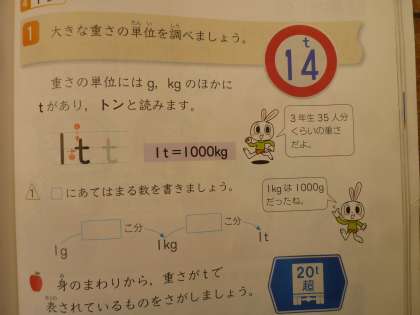 1 大きな重さの単位を調べましょう。
たんい しら
t
14
重さの単位には g, kg のほかに
t があり，トンと読みます。
3年生35人分
くらいの重さ
だよ。
1t t
1t＝1000kg
1 □にあてはまる数を書きましょう。
1kgは1000g
だったね。
こ分 こ分
1g 1kg 1t
み
身のまわりから，重さがtで
あらわ
表されているものをさがしましょう。
20t
超